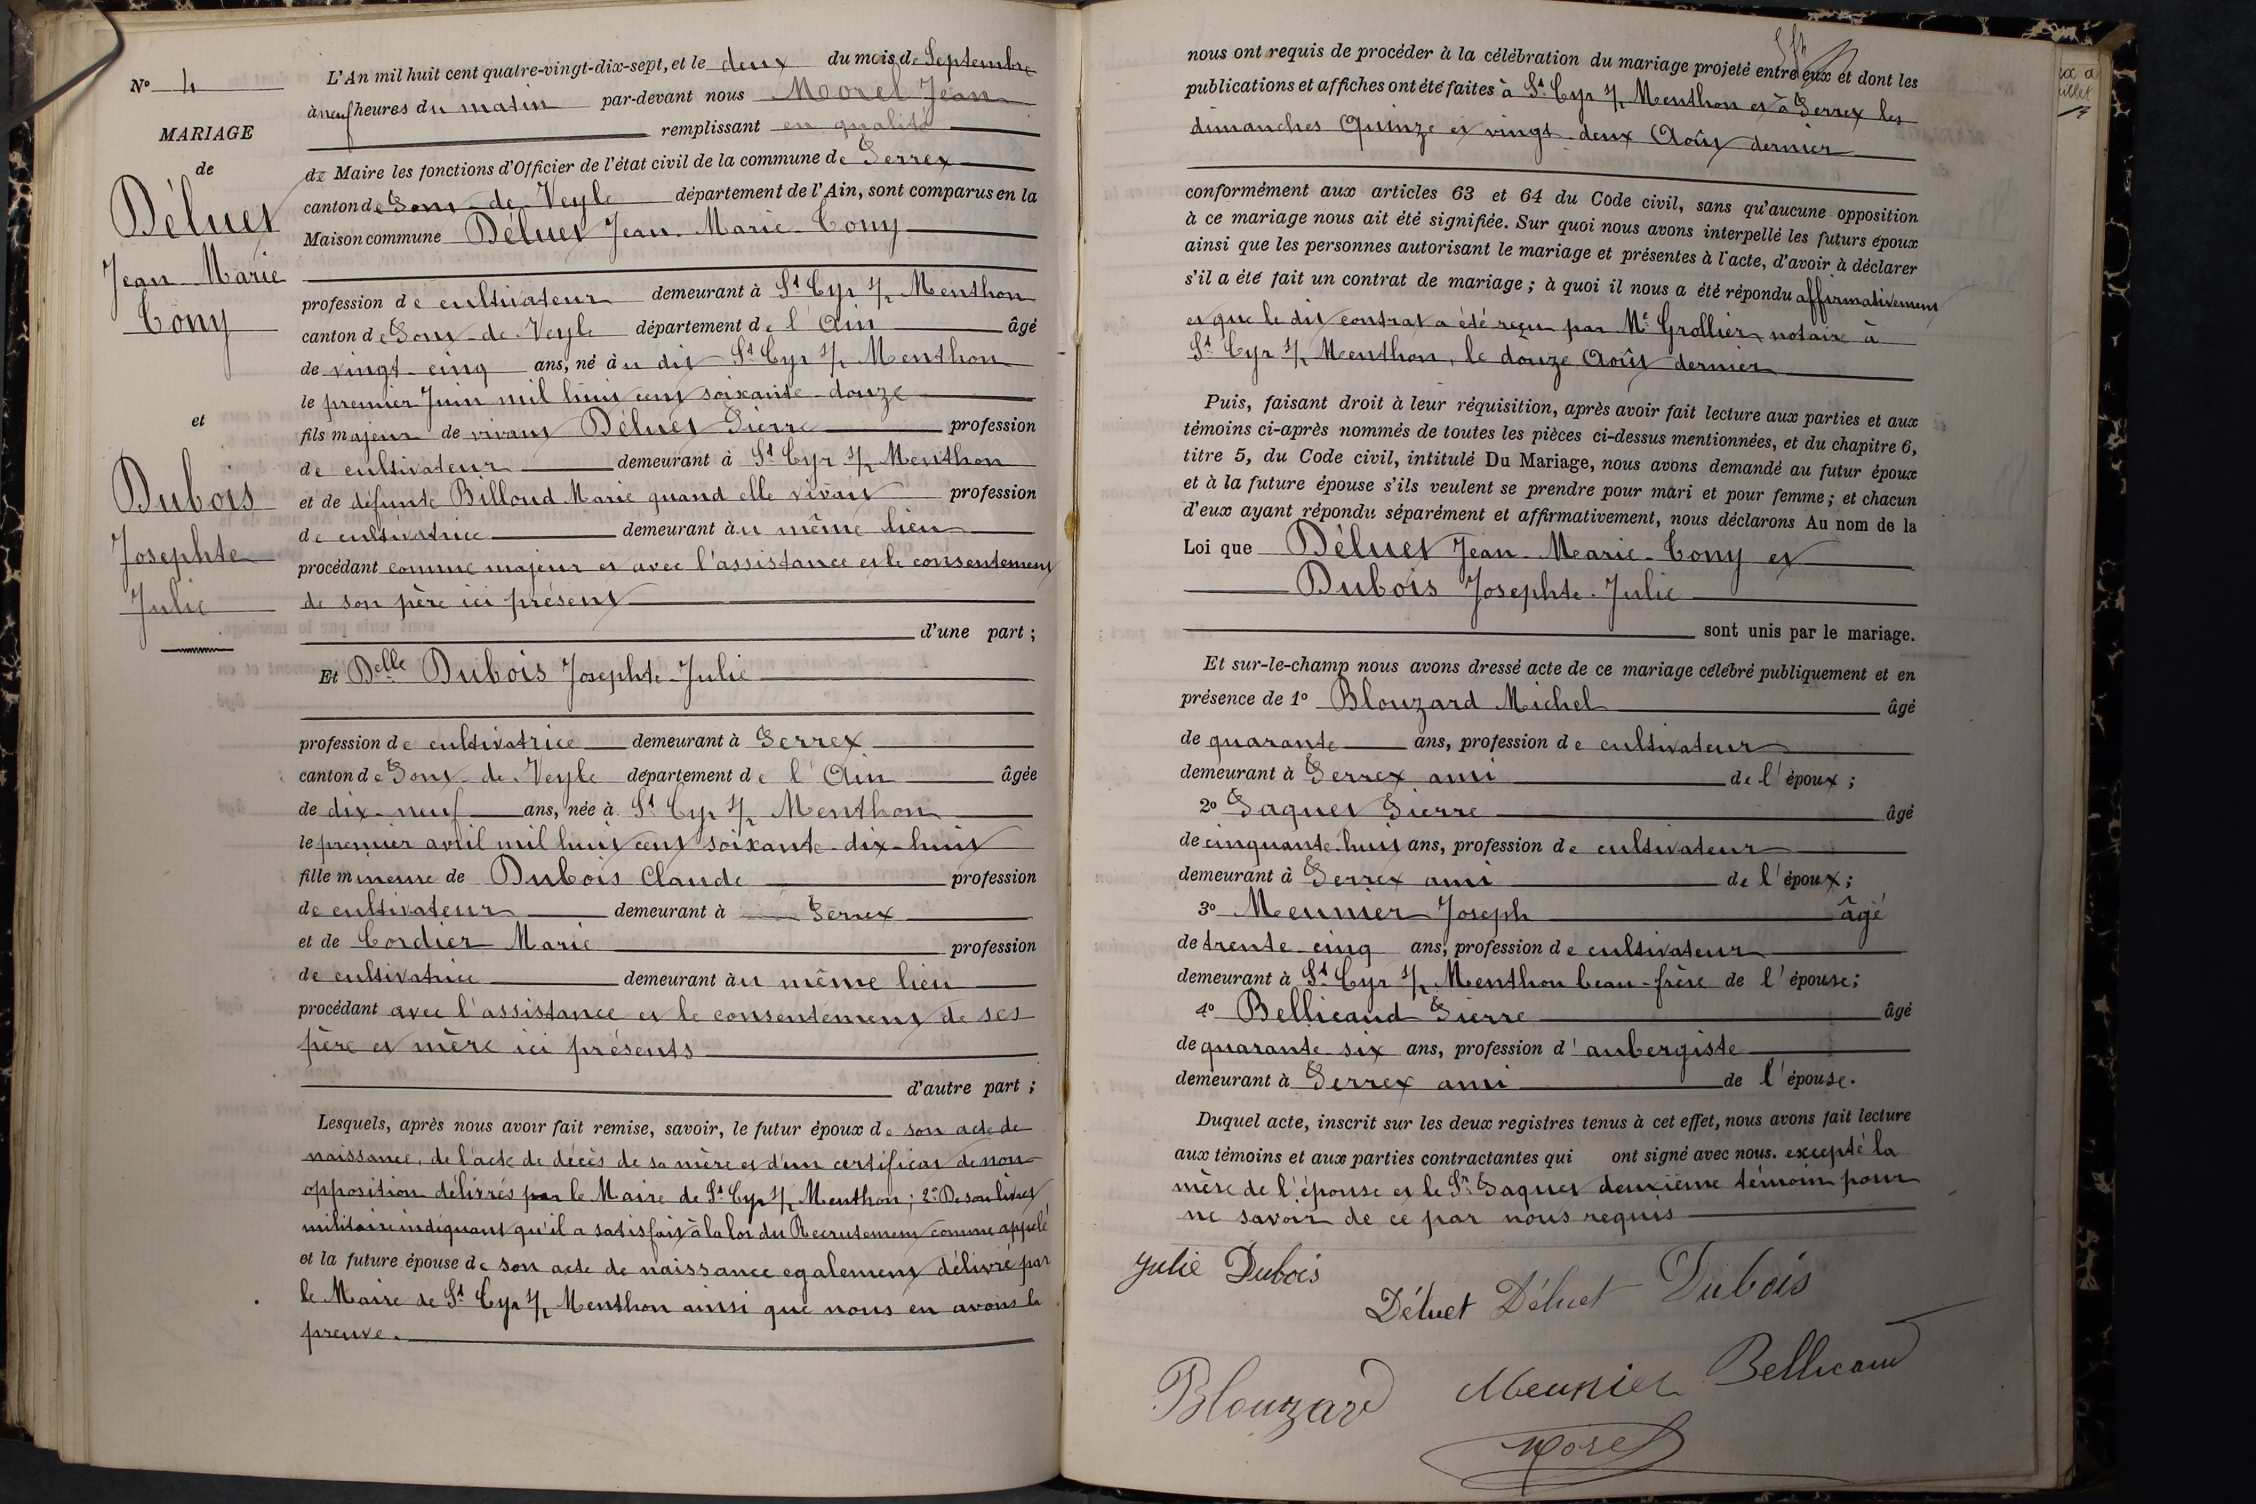 N° 4
MARIAGE
de
Déluet
Jean-Marie
Tony
et
Dubois
Josephte
Julie
L'An mil huit cent quatre-vingt-dix-sept, et le deux du mois de Septembre
à neuf heures du matin par-devant nous Morel Jean
remplissant en qualité
de Maire les fonctions d'Officier de l'état civil de la commune de Perrex
canton de Pont-de-Veyle département de l'Ain, sont comparus en la
Maison commune Déluet Jean-Marie-Tony
profession de cultivateur demeurant à St Cyr s/ Menthon
canton de Pont-de-Veyle département de l'Ain âgé
de vingt-cinq ans, né au dit St Cyr s/ Menthon
le premier Juin mil huit cent soixante-douze
fils majeur de vivant Déluet Pierre profession
de cultivateur demeurant à St Cyr s/ Menthon
et de défunte Billoud Marie quand elle vivait profession
de cultivatrice demeurant au même lieu
procédant comme majeur et avec l'assistance et le consentement
de son père ici présent
d'une part ;
Et Delle Dubois Josephte-Julie
profession de cultivatrice demeurant à Perrex
canton de Pont-de-Veyle département de l'Ain âgée
de dix-neuf ans, née à St Cyr s/ Menthon
le premier avril mil huit cent soixante-dix-huit
fille mineure de Dubois Claude profession
de cultivateur demeurant à Perrex
et de Cordier Marie profession
de cultivatrice demeurant au même lieu
procédant avec l'assistance et le consentement de ses
père et mère ici présents
d'autre part ;
Lesquels, après nous avoir fait remise, savoir, le futur époux de son acte de
naissance, de l'acte de décès de sa mère et d'un certificat de non
opposition délivrés par le Maire de St Cyr s/ Menthon ; 2° De son livret
militaire indiquant qu'il a satisfait à la loi du Recrutement comme appelé
et la future épouse de son acte de naissance egalement délivré par
le Maire de St Cyr s/ Menthon ainsi que nous en avons la
preuve.
nous ont requis de procéder à la célébration du mariage projeté entre eux et dont les
publications et affiches ont été faites à St Cyr s/ Menthon et à Perrex les
dimanches Quinze et vingt-deux Août dernier
conformément aux articles 63 et 64 du Code civil, sans qu'aucune opposition
à ce mariage nous ait été signifiée. Sur quoi nous avons interpellé les futurs époux
ainsi que les personnes autorisant le mariage et présentes à l'acte, d'avoir à déclarer
s'il a été fait un contrat de mariage ; à quoi il nous a été répondu affirmativement
et que le dit contrat a été reçu par Me Grollier notaire à
St Cyr s/ Menthon, le douze Août dernier
Puis, faisant droit à leur réquisition, après avoir fait lecture aux parties et aux
témoins ci-après nommés de toutes les pièces ci-dessus mentionnées, et du chapitre 6,
titre 5, du Code civil, intitulé Du Mariage, nous avons demandé au futur époux
et à la future épouse s'ils veulent se prendre pour mari et pour femme ; et chacun
d'eux ayant répondu séparément et affirmativement, nous déclarons Au nom de la
Loi que Déluet Jean-Marie-Tony et
Dubois Josephte-Julie
sont unis par le mariage.
Et sur-le-champ nous avons dressé acte de ce mariage célébré publiquement et en
présence de 1° Blouzard Michel âgé
de quarante ans, profession de cultivateur
demeurant à Perrex ami de l'époux ;
2° Paquet Pierre âgé
de cinquante-huit ans, profession de cultivateur
demeurant à Perrex ami de l'époux ;
3° Meunier Joseph âgé
de trente-cinq ans, profession de cultivateur
demeurant à St Cyr s/ Menthon beau-frère de l'épouse ;
4° Bellicaud Pierre âgé
de quarante-six ans, profession d'aubergiste
demeurant à Perrex ami de l'épouse.
Duquel acte, inscrit sur les deux registres tenus à cet effet, nous avons fait lecture
aux témoins et aux parties contractantes qui ont signé avec nous. excepté la
mère de l'épouse et le Sr Paquet deuxième témoin pour
ne savoir de ce par nous requis
Julie Dubois
Déluet Déluet Dubois
Blouzard Meunier Bellicaud
Morel